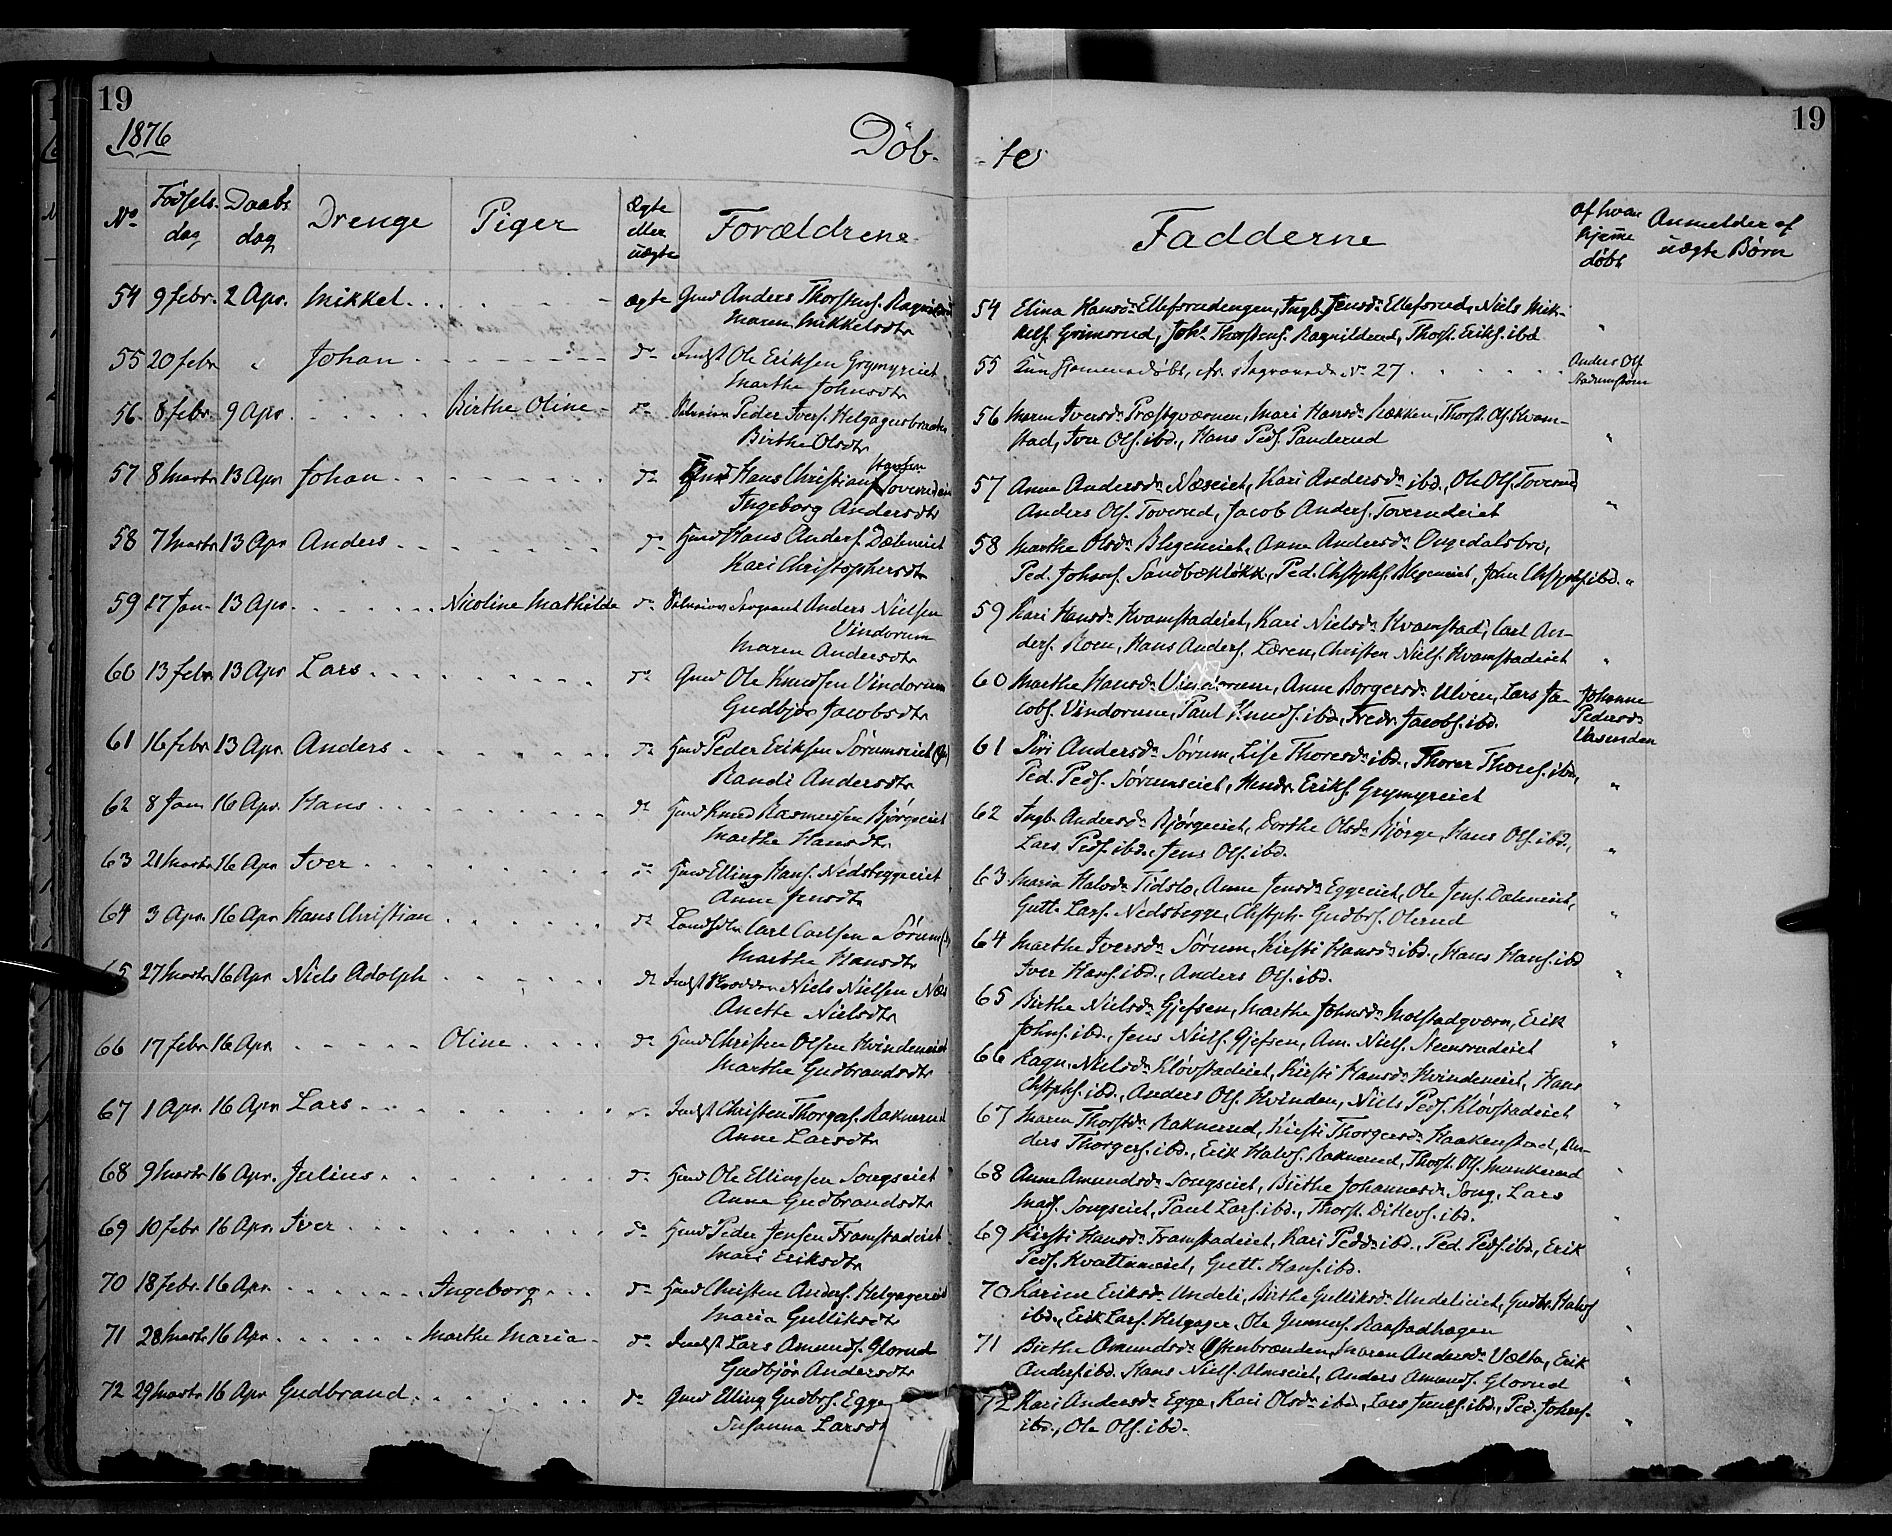 19
1876
Döb-
No
Fødsels-
dag
Daabs
dag
Drenge
Piger
Ægte
eller
uægte
Forældrene
54 9 febr. 2 Apr. Mikkel ægte Gmd Anders Thorstens.
Maren Mikkelsdtr
55 20 febr " Johan do Indst Ole Eriksen Grymyreiet
Marthe Johnsdtr
56 8 febr. 9 Apr. Birthe Oline do Peder Ivers. Helgagerbraaten
Birthe Olsdtr
57 8 Marts 13 Apr. Johan do Hans Christian Hansen Toverudeiet
Ingeborg Andersdtr
58 7 Marts 13 Apr Anders do Hmd Hans Anders. Dæleneiet
Kari Christophersdtr
59 17 Jan. 13 Apr. Nicoline Mathilde do Sergeant Anders Nielsen
Vindorum
Maren Andersdtr
60 13 febr 13 Apr Lars do Gmd Ole Knudsen Vindorum
Gudbjør Jacobsdtr
61 16 febr 13 Apr. Anders do Hmd Peder Eriksen Sørumseiet
Randi Andersdtr
62 8 Jan 16 Apr. Hans do Hmd Knud Rasmussen Bjørgeeiet
Marthe Hansdtr
63 21 Marts 16 Apr Iver do Hmd Elling Hans. Nedreeggeeiet
Anne Jensdtr
64 3 Apr. 16 Apr Hans Christian do Carl Carlsen Sørum
Marthe Hansdtr
65 27 Marts 16 Apr. Niels Adolph do Indst Niels Nielsen
Anethe Nielsdtr
66 17 febr 16 Apr. Oline do Hmd Christen Olsen Hvindeneiet
Marthe Gudbrandsdtr
67 1 Apr. 16 Apr Lars Indst Christen Thorgers. Raknerud
Anne Larsdtr
68 9 Marts 16 Apr. Julius do Hmd Ole Ellingsen Songseiet
Anne Gudbrandsdtr
69 10 febr 16 Apr. Iver do Hmd Peder Jensen Framstadeiet
Mari Eriksdtr
70 18 febr. 16 Apr. Ingeborg do Hmd Christen Anders. Helgagereiet
Maria Gulliksdtr
71 28 Marts 16 Apr. Marthe Maria do Indst Lars Amunds. Glorud
Gudbjør Andersdtr
72 29 Marts 16 Apr Gudbrand do Gmd Elling Gudbrs. Egge
Susanna Larsdt
19
-te
Fadderne
af hvem
hjeme
døbt
Anmelder af
uægte Børn
54 Elina Hansdr Ellefsrudengen, Ingb. Jensdr Ellefsrud, Niels Mik-
kels. Grimsrud, Johs Thorstens. Ragnildrud, Thorst. Eriks. ibd "
55 Kun hjemmedøbt, No 27 Anders Ols.
56 Maren Iversdr Præstqværnen, Mari Hansdr Rækken, Thorst. Ols. Kvam-
stad, Iver Ols. ibd., Hans Peds. Panderud "
57 Anne Andersdr Næseiet, Kari Andersdr ibd., Ole Ols. Toverud
Anders Ols. Toverud, Jacob Anders. Toverudeiet "
58 Marthe Olsdr Blegeneiet, Anne Andersdr Ongedalsbro,
Ped. Johns. Sandbækløkk., Ped. Chstphs. Blegeneiet, John Chstphs. ibd. "
59 Kari Hansdr Kvamstadeiet, Kari Nielsdr Kvamstad, Carl An-
ders. Roen, Hans Anders. Læren, Christen Niels. Kvamstadeiet "
60 Marthe Hansdr Vindorum, Anne Borgersdr Ulven, Lars Ja- Johanne
cobs. Vindorum, Paul Knuds. ibd., Fredr. Jacobs. ibd. Pedersdr
Vasenden
61 Siri Andersdr Sørum, Lise Thoresdr ibd., Thorer Thores. ibd.,
Ped. Peds. Sørumseiet, Hendr. Eriks. Grymyreiet "
62 Ingb. Andersdr Bjørgeeiet, Dorthe Olsdr Bjørge, Hans Ols. ibd.,
Lars Peds. ibd., Jens Ols. ibd. "
63 Maria Halvdr Tidslo, Anne Jensdr Eggeeiet, Ole Jens. Dæleneiet,
Gutt. Lars. Nedreegge, Chstph. Gudbrs. Olerud "
64 Marthe Iversdr Sørum, Kirsti Hansdr ibd., Hans Hans. ibd
Iver Hans. ibd., Anders Ols. ibd. "
65 Birthe Nielsdr Gjefsen, Marthe Johnsdr Molstadqværn, Erik
Johns. ibd., Jens Niels. Gjefsen, Am. Niels. Steensrudeiet "
66 Ragn. Nielsdr Kløvstadeiet, Kirsti Hansdr Hvindeneiet, Hans
Chstphs. ibd., Anders Ols. Hvinden, Niels Peds. Kløvstadeiet "
67 Maren Thorstdr Raknerud, Kirsti Thorgersdr Haakenstad, An-
ders Thorgers. ibd., Erik Halvs. Raknerud, Thorst. Ols. Munkerud "
68 Anne Amundsdr Songseiet, Birthe Johannesdr Song, Lars
Mats. Songseiet, Paul Lars. ibd., Thorst. Ditlevs. ibd. "
69 Kirsti Hansdr Framstadeiet, Kari Pedsdr ibd., Ped. Peds. ibd., Erik
Peds. Kvattumeiet, Gutt. Hans. ibd. "
70 Karine Eriksdr Undeli, Birthe Gulliksdr Undelieiet, Gudbr. Halvs
ibd., Erik Lars. Helgager, Ole Gunners. Raastadhagen "
71 Birthe Amundsdr Østenbrænden, Maren Andersdr Vælta, Erik
Anders. ibd. Hans Niels. Almseiet, Anders Amunds. Glorud "
72 Kari Andersdr Egge, Kari Olsdr ibd., Lars Juels. ibd., Ped. Johns.
ibd., Ole Ols. ibd. "